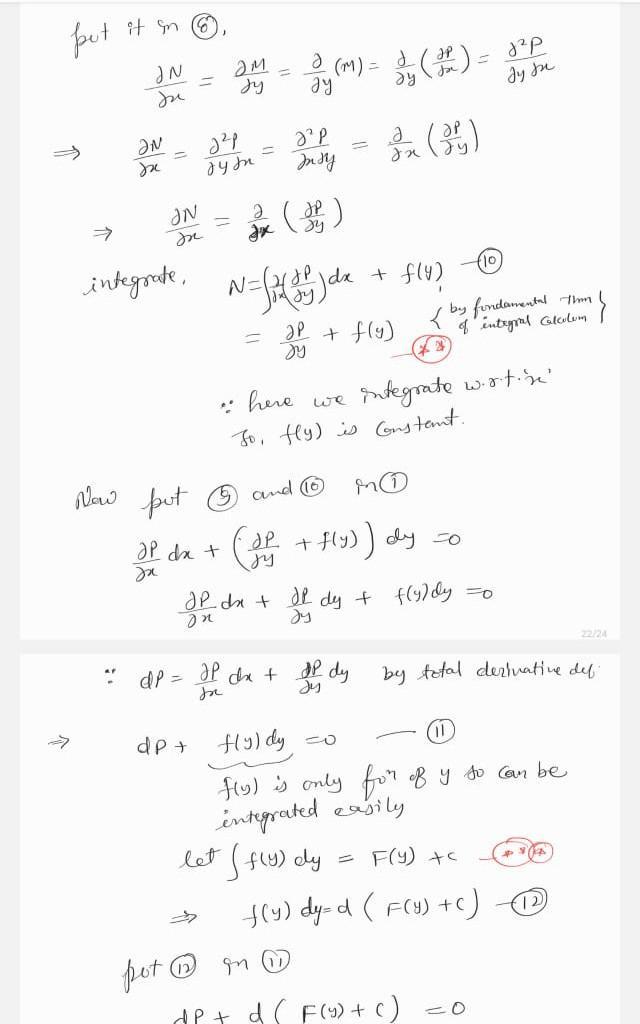 put it in ⑧,
∂N/∂x = ∂M/∂y = ∂/∂y (M) = ∂/∂y (∂P/∂x) = ∂²P/∂y∂x
⇒ ∂N/∂x = ∂²P/∂y∂x = ∂²P/∂x∂y = ∂/∂x (∂P/∂y)
⇒ ∂N/∂x = ∂/∂x (∂P/∂y)
integrate, N = ∫ ∂/∂x (∂P/∂y) dx + f(y) —⑩
= ∂P/∂y + f(y) { by fundamental Thm of integral Calculum }
**
∵ here we integrate w.r.t. 'x'
So, f(y) is constant.
Now put ⑨ and ⑩ in ①
∂P/∂x dx + (∂P/∂y + f(y)) dy = 0
∂P/∂x dx + ∂P/∂y dy + f(y) dy = 0
22/24
∵ dP = ∂P/∂x dx + ∂P/∂y dy by total derivative def.
⇒ dP + f(y) dy = 0 — ⑪
f(y) is only for of y so can be
integrated easily
let ∫ f(y) dy = F(y) + c —***
⇒ f(y) dy = d ( F(y) + c) —⑫
put ⑫ in ⑪
dP + d ( F(y) + c) = 0